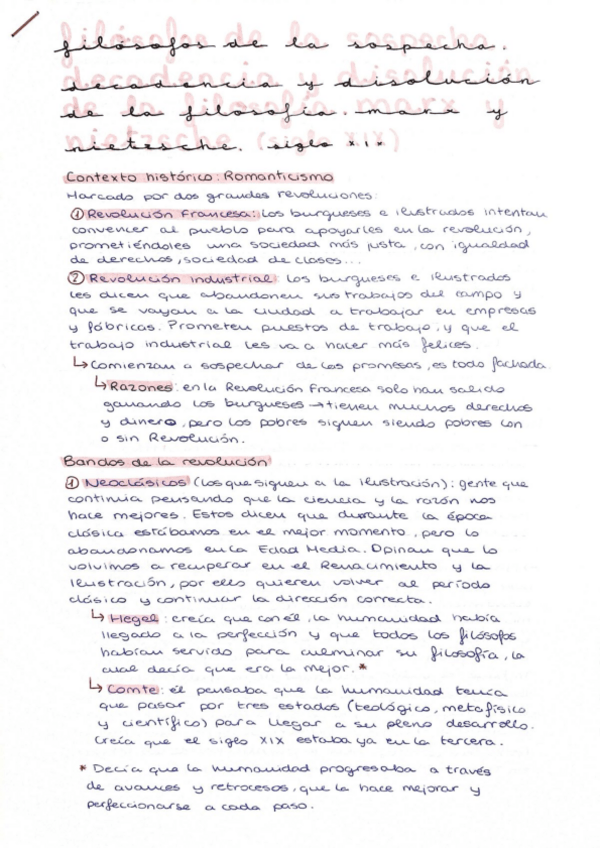 filósofos de la sospecha.
decadencia y disolución
de la filosofía. marx y
nietzsche. (siglo XIX)
Contexto histórico: Romanticismo
Marcado por dos grandes revoluciones:
① Revolución Francesa: los burgueses e ilustrados intentan
convencer al pueblo para apoyarles en la revolución,
prometiéndoles una sociedad más justa, con igualdad
de derechos, sociedad de clases...
② Revolución industrial: los burgueses e ilustrados
les dicen que abandonen sus trabajos del campo y
que se vayan a la ciudad a trabajar en empresas
y fábricas. Prometen puestos de trabajo, y que el
trabajo industrial les va a hacer más felices.
↳ Comienzan a sospechar de las promesas, es todo fachada.
↳ Razones: en la Revolución Francesa solo han salido
ganando los burgueses → tienen muchos derechos
y dinero, pero los pobres siguen siendo pobres con
o sin Revolución.
Bandos de la revolución
① Neoclásicos (los que siguen a la ilustración): gente que
continúa pensando que la ciencia y la razón nos
hace mejores. Estos dicen que durante la época
clásica estábamos en el mejor momento, pero lo
abandonamos en la Edad Media. Opinan que lo
volvimos a recuperar en el Renacimiento y la
Ilustración, por ello quieren volver al período
clásico y continuar la dirección correcta.
↳ Hegel: creía que con él, la humanidad había
llegado a la perfección y que todos los filósofos
habían servido para culminar su filosofía, la
cual decía que era la mejor. *
↳ Comte: él pensaba que la humanidad tenía
que pasar por tres estados (teológico, metafísico
y científico) para llegar a su pleno desarrollo.
Creía que el siglo XIX estaba ya en la tercera.
* Decía que la humanidad progresaba a través
de avances y retrocesos, que la hace mejorar y
perfeccionarse a cada paso.